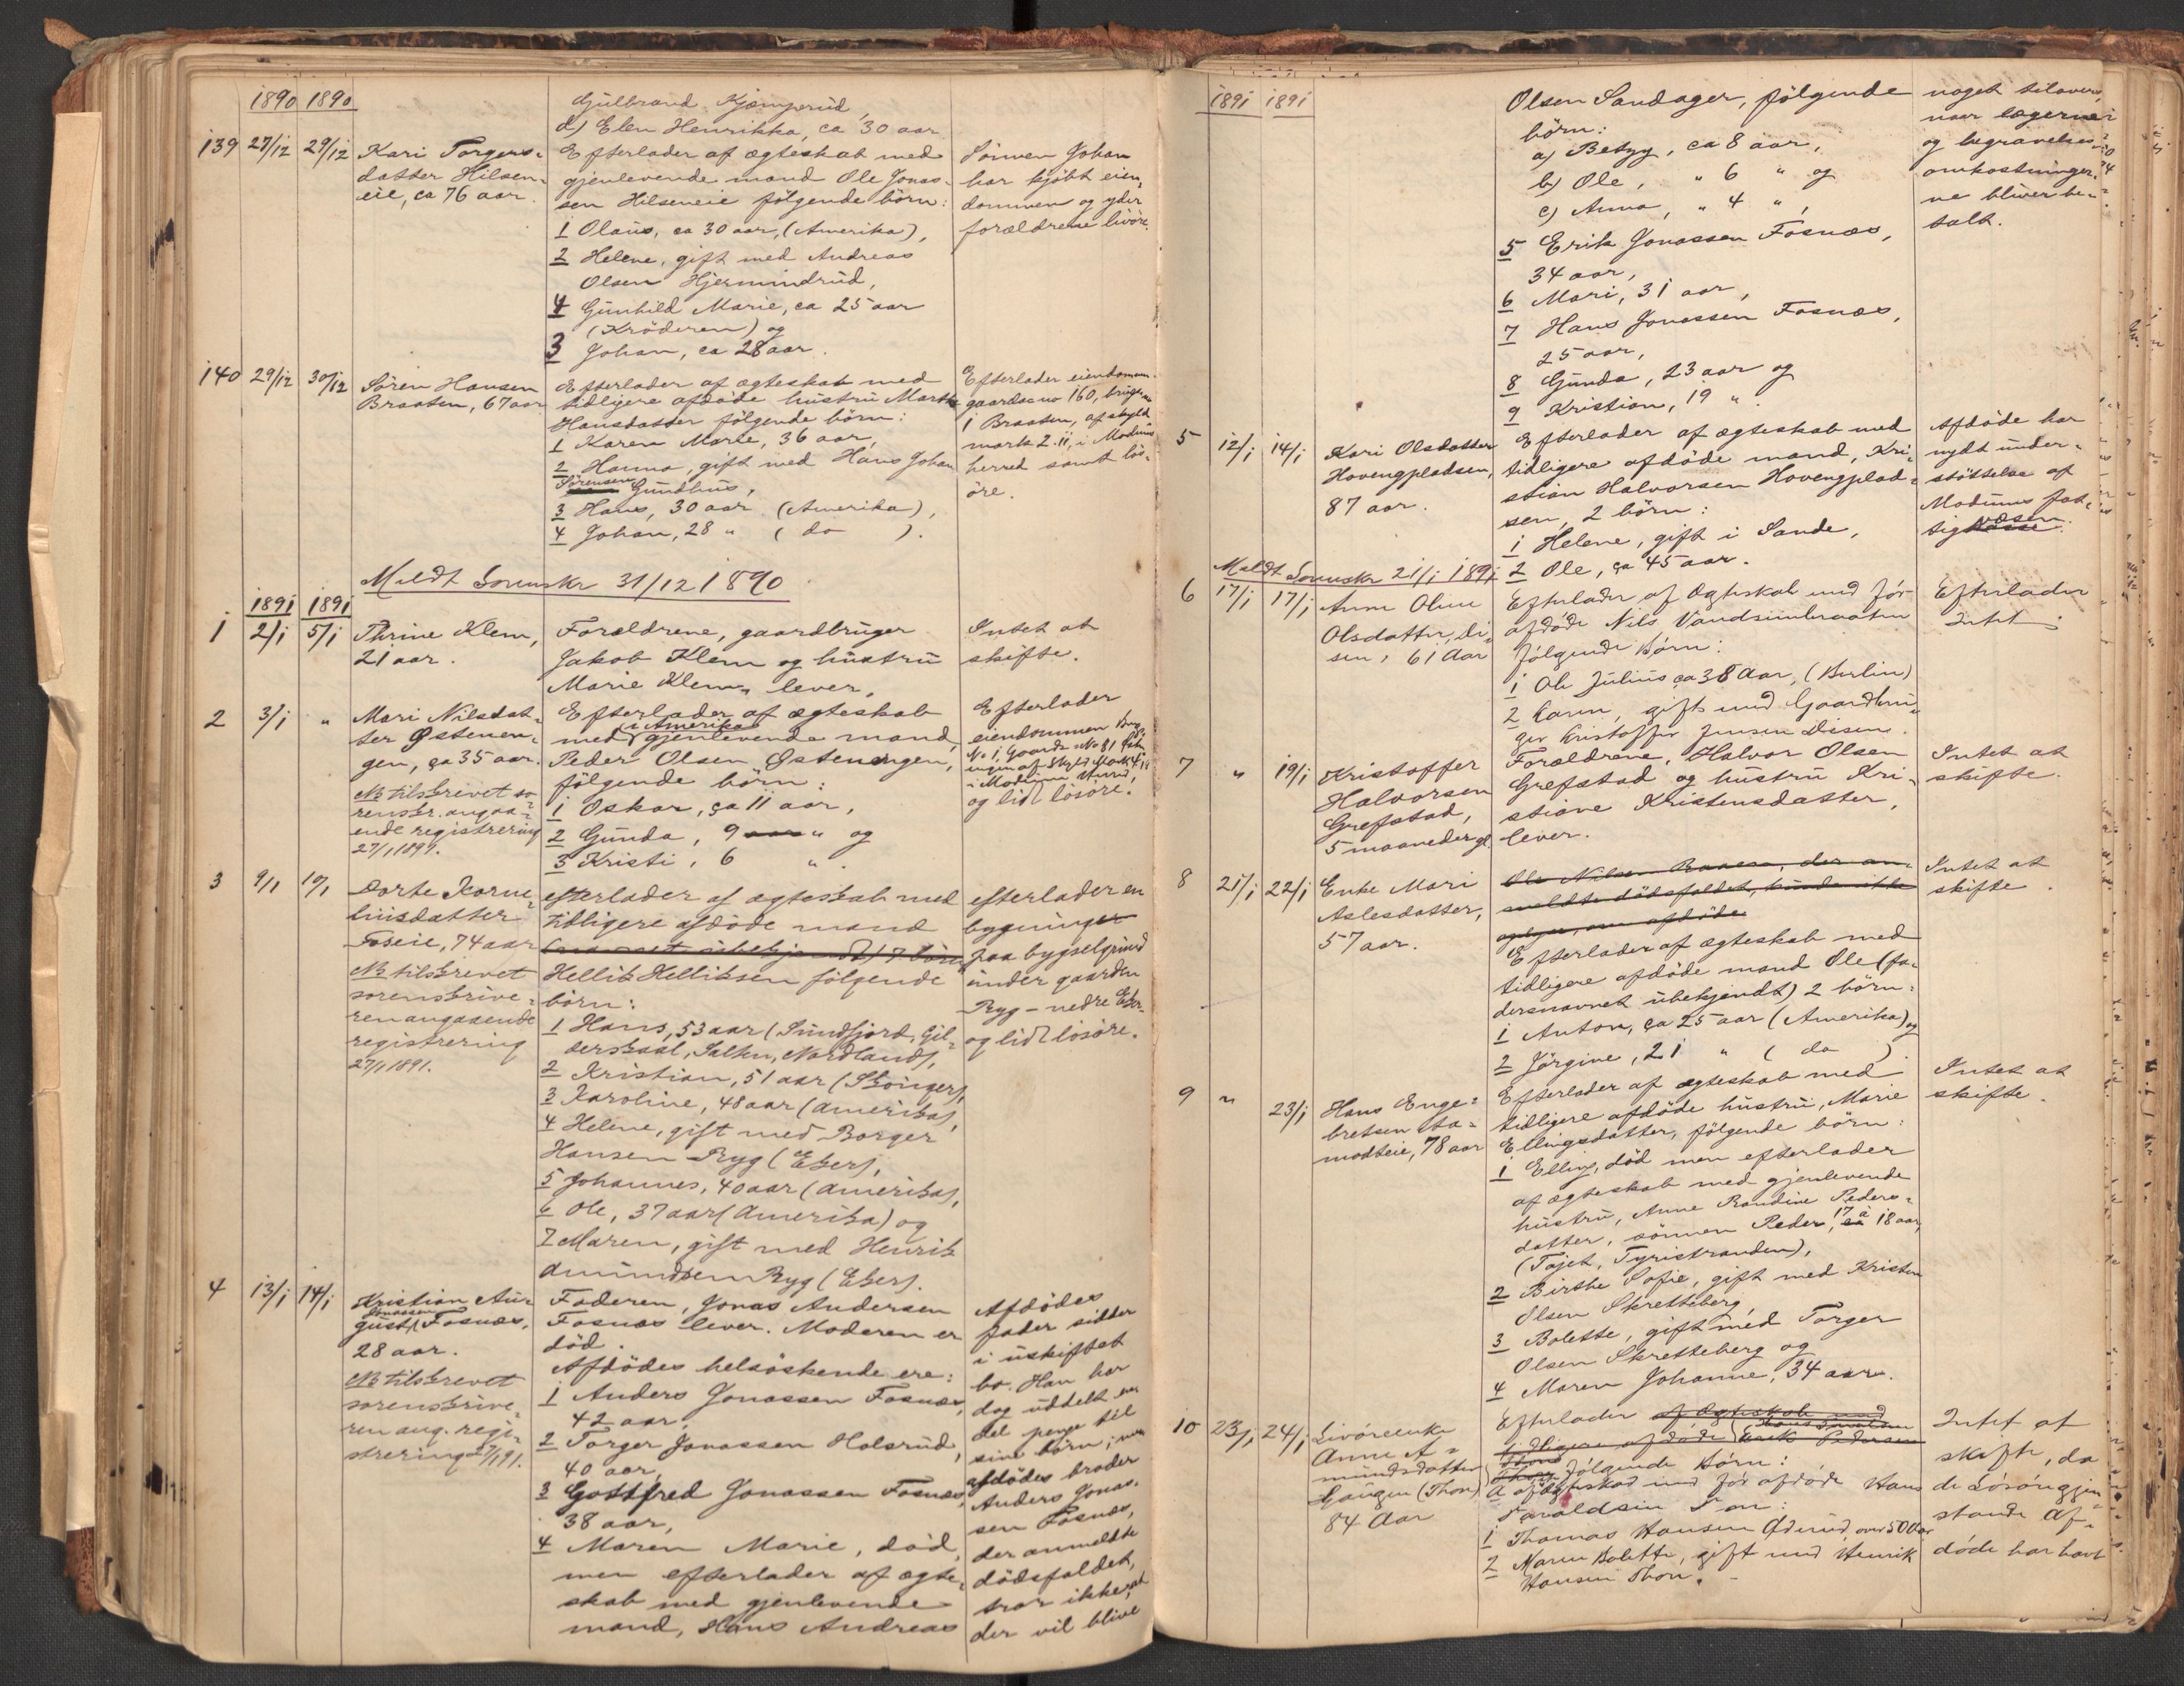 1890 1890
Gulbrand Kjæmperud,
d) Elen Henrikka, ca 30 aar
139 27/12 29/12 Kari Torgers-
datter Hilsen-
eie, ca 76 aar.
Efterlader af ægteskab med
gjenlevende mand Ole Jonas-
sen Hilseneie følgende børn:
1 Olaus, ca 30 aar, (Amerika),
2 Helene, gift med Andreas
Olsen Hjermindrud,
4 Gunhild Marie, ca 25 aar
(Krøderen) og
3 Johan, ca 28 aar.
Sønnen Johan
har kjøbt eien-
dommen og yder
forældrene livøre.
140 29/12 30/12 Søren Hansen
Braaten, 67 aar
Efterlader af ægteskab med
tidligere afdøde hustru Marthe
Hansdatter følgende børn:
1 Karen Marie, 36 aar,
2 Hanna, gift med Hans Johan
Sørensen Gundhus,
3 Hans, 30 aar (Amerika),
4 Johan, 28 " ( do ).
Efterlader eiendommen
gaardsno 160, brugsno
1 Braaten, af skyld
mark 2.11, i Modums
herred samt løs-
øre.
Meldt Sorenskr 31/12 1890
1891 1891
1 2/1 5/1 Thrine Klem,
21 aar.
Forældrene, gaardbruger
Jakob Klem og hustru
Marie Klem, lever.
Intet at
skifte.
2 3/1 " Mari Nilsdat-
ter Østenen-
gen, ca 35 aar.
NB tilskrevet so-
renskr. angaa-
ende registrering
27/1 1891.
Efterlader af ægteskab
med i Amerika gjenlevende mand,
Peder Olsen Østenengen,
følgende børn:
1 Oskar, ca 11 aar,
2 Gunda, 9 aar " og
3 Kristi, 6 ".
Efterlader
eiendommen Brugs
No 1, Gaards No 81
af Skyld Mark
i Modums Herred,
og lidt løsøre.
3 9/1 10/1 Dorte Korne-
liusdatter
Foseie, 74 aar
NB tilskrevet
sorenskrive-
ren angaaende
registrering
27/1 1891.
efterlader af ægteskab med
tidligere afdøde mand
(navnet ubekjendt) 7 børn
Hellik Helliksen følgende
børn:
1 Hans, 53 aar (Sundfjord, Gil-
derskaal, Salten, Nordland),
2 Kristian, 51 aar (Skoniger),
3 Karoline, 48 aar (Amerika),
4 Helene, gift med Borger
Hansen Ryg (Eker),
5 Johannes, 40 aar (Amerika),
6 Ole, 37 aar (Amerika) og
7 Maren, gift med Henrik
Amundsen Ryg (Eker).
efterlader en
bygninger
paa bygselgrund
under gaarden
Ryg - nedre Eker-
og lidt løsøre.
4 13/1 14/1 Kristian Au-
gust Jonassen Fosnæs,
28 aar.
NB tilskrevet
sorenskrive-
ren ang. regi-
strering 27/1 91.
Faderen, Jonas Andersen
Fosnæs lever. Moderen er
død.
Afdødes helsøskende ere:
1 Anders Jonassen Fosnæs,
42 aar,
2 Torger Jonassen Holsrud,
40 aar,
3 Gottfred Jonassen Fosnæs,
38 aar,
4 Maren Marie, død,
men efterlader af ægte-
skab med gjenlevende
mand, Hans Andreas
Afdødes
fader sidder
i uskiftet
bo. Han har
dog uddelt en
del penge til
sine børn; men
afdødes broder
Anders Jonas-
sen Fosnæs,
der anmeldte
dødsfaldet,
tror ikke, at
der vil blive
1891 1891
Olsen Sandager, følgende
børn:
a) Betzy, ca 8 aar,
b) Ole, " 6 " og
c) Anna, " 4 ",
5 Erik Jonassen Fosnæs,
34 aar,
6 Mari, 31 aar,
7 Hans Jonassen Fosnæs,
25 aar,
8 Gunda, 23 aar og
9 Kristian, 19 ".
noget tilovers,
naar lægerne
og begravelses-
omkostninger-
ne bliver be-
talt.
5 12/1 14/1 Kari Olsdatter
Hovengpladsen,
87 aar.
Efterlader af ægteskab med
tidligere afdøde mand, Kri-
stian Halvorsen Hovengplad-
sen, 2 børn:
1 Helene, gift i Sande,
2 Ole, ca 45 aar.
Afdøde har
nydt under-
støttelse af
Modums fat-
tigkasse væsen.
Meldt Sorenskr 21/1 1891
6 17/1 17/1 Anne Oline
Olsdatter, Di-
sen, 61 Aar
Efterlader af Ægteskab med før
afdøde Nils Vandsimbraaten
følgende Børn:
1 Ole Julius ca 38 Aar, (Berlin)
2 Karen, gift med Gaardbru-
ger Kristoffer Jensen Disen.
Efterlader
Intet.
7 " 19/1 Kristoffer
Halvorsen
Grefstad,
5 maaneder gl.
Forældrene, Halvor Olsen
Grefstad og hustru Kri-
stiane Kristensdatter,
lever.
Intet at
skifte.
8 21/1 22/1 Enke Mari
Aslesdatter,
57 aar.
Ole Nilsen Braaten, der an-
meldte dødsfaldet, kunde ikke
opgive, om afdøde
Efterlader af ægteskab med
tidligere afdøde mand Ole (fa-
dersnavnet ubekjendt) 2 børn:
1 Anton, ca 25 aar (Amerika) og
2 Jørgine, 21 " ( do ).
Intet at
skifte.
9 " 23/1 Hans Enge-
bretsen Sta-
modteie, 78 aar
Efterlader af ægteskab med
tidligere afdøde hustru, Marie
Ellingsdatter, følgende børn:
1 Elling, død men efterlader
af ægteskab med gjenlevende
hustru, Anne Randine Peders-
datter, sønnen Peder, 17 à 18 aar,
(Tajet, Tyristranden),
2 Birthe Sofie, gift med Kristen
Olsen Skretteberg,
3 Bolette, gift med Torger
Olsen Skretteberg og
4 Maren Johanne, 34 aar.
Intet at
skifte.
10 23/1 24/1 Livøreenke
Anne A-
mundsdatter
Gaugen (Thon)
84 Aar
Efterlader af Ægteskab med
tidligere afdøde Pedersen
Thon følgende Børn:
A af Ægteskab med før afdøde Hans
Taraldsen Ton:
1 Thomas Hansen Øderud, over 50 Aar
2 Maren Bolette, gift med Henrik
Hansen Thon.
Intet at
skifte, da
de Løsøregjen-
stande Af-
døde har havt